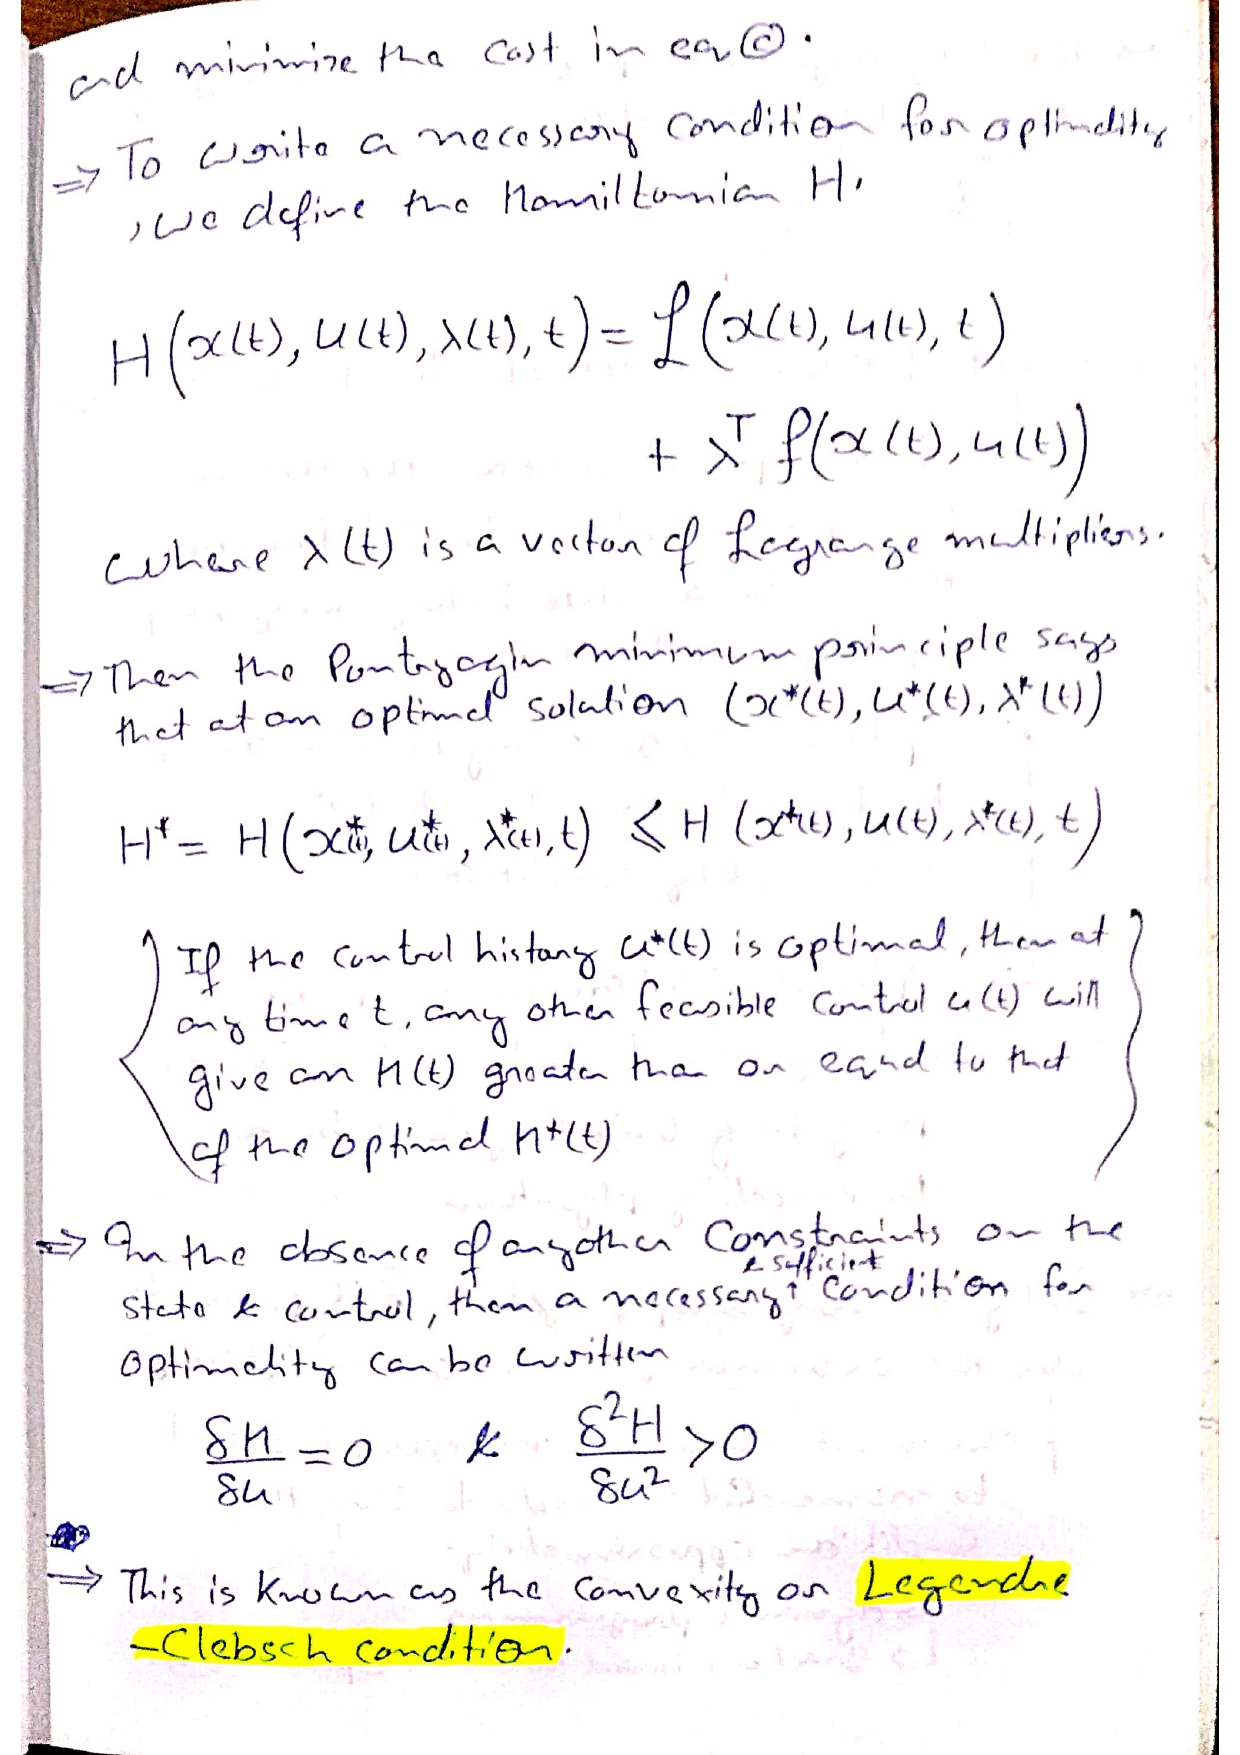 and minimize the cost in eq ⓒ.
⇒ To write a necessary condition for optimality
, we define the Hamiltonian H.
H(x(t), u(t), λ(t), t) = ℒ(x(t), u(t), t)
+ λᵀ f(x(t), u(t))
where λ(t) is a vector of Lagrange multipliers.
⇒ Then the Pontryagin minimum principle says
that at an optimal solution (x*(t), u*(t), λ*(t))
H* = H(x*(t), u*(t), λ*(t), t) ≤ H (x*(t), u(t), λ*(t), t)
{ If the control history u*(t) is optimal, then at
any time t, any other feasible control u(t) will
give an H(t) greater than or equal to that
of the optimal H*(t) }
⇒ In the absence of any other constraints on the
state & control, then a necessary & sufficient condition for
optimality can be written
δH/δu = 0 & δ²H/δu² > 0
⇒ This is known as the convexity or Legendre
-Clebsch condition.